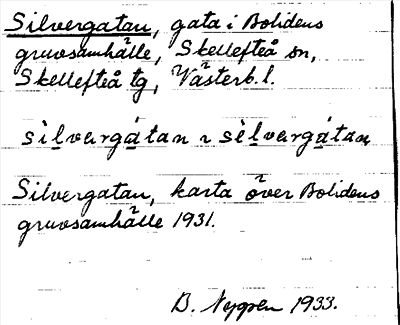 Silvergatan, gata i Bolidens
gruvsamhälle, Skellefteå sn,
Skellefteå tg, Västerb. l.
sìlvərgátan ~ sèlvərgátan
Silvergatan, karta över Bolidens
gruvsamhälle 1931.
B. 1933.